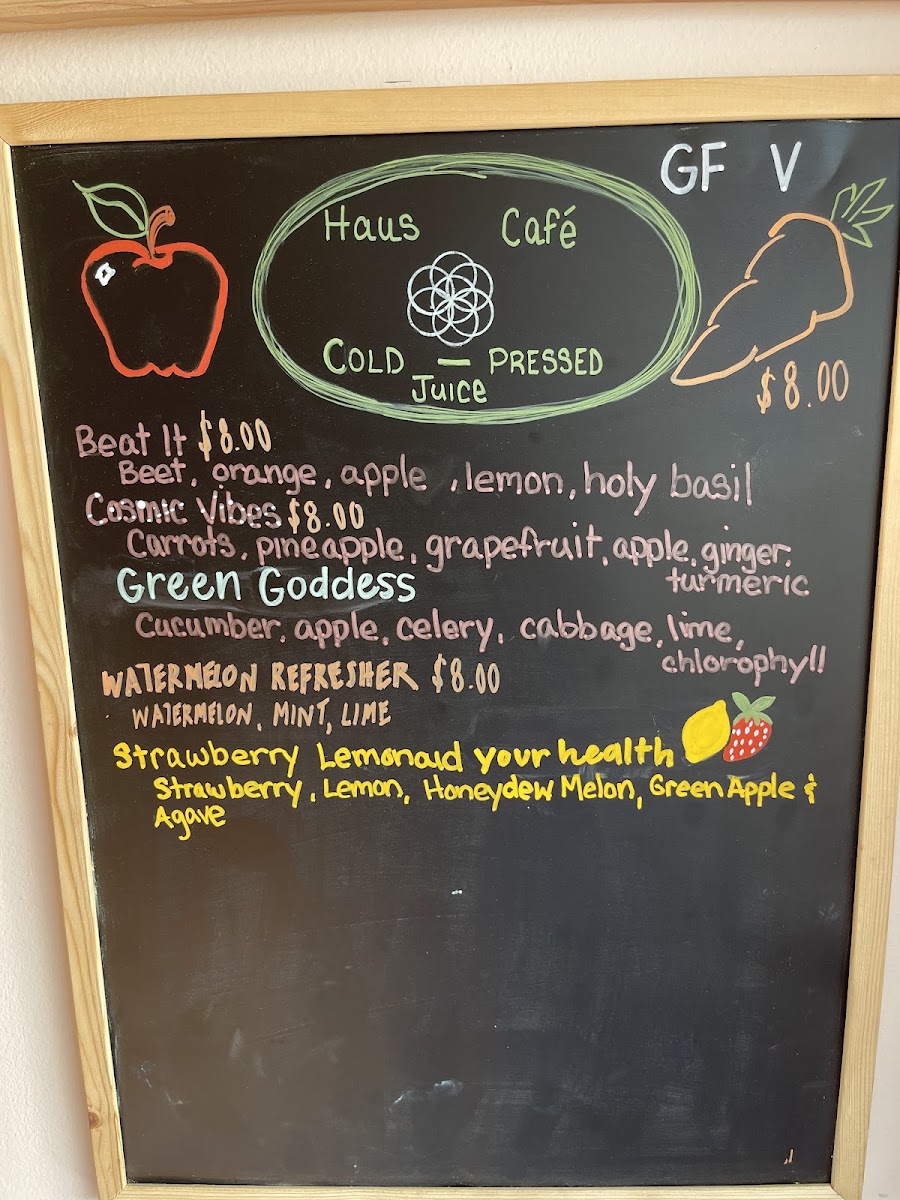 GF V
Haus Café
COLD - PRESSED
Juice
$8.00
Beat It $8.00
Beet, orange, apple, lemon, holy basil
Cosmic Vibes $8.00
Carrots, pineapple, grapefruit, apple, ginger,
turmeric
Green Goddess
Cucumber, apple, celery, cabbage, lime,
chlorophyll
WATERMELON REFRESHER $8.00
WATERMELON, MINT, LIME
Strawberry Lemonaid your health
Strawberry, Lemon, Honeydew Melon, Green Apple &
Agave